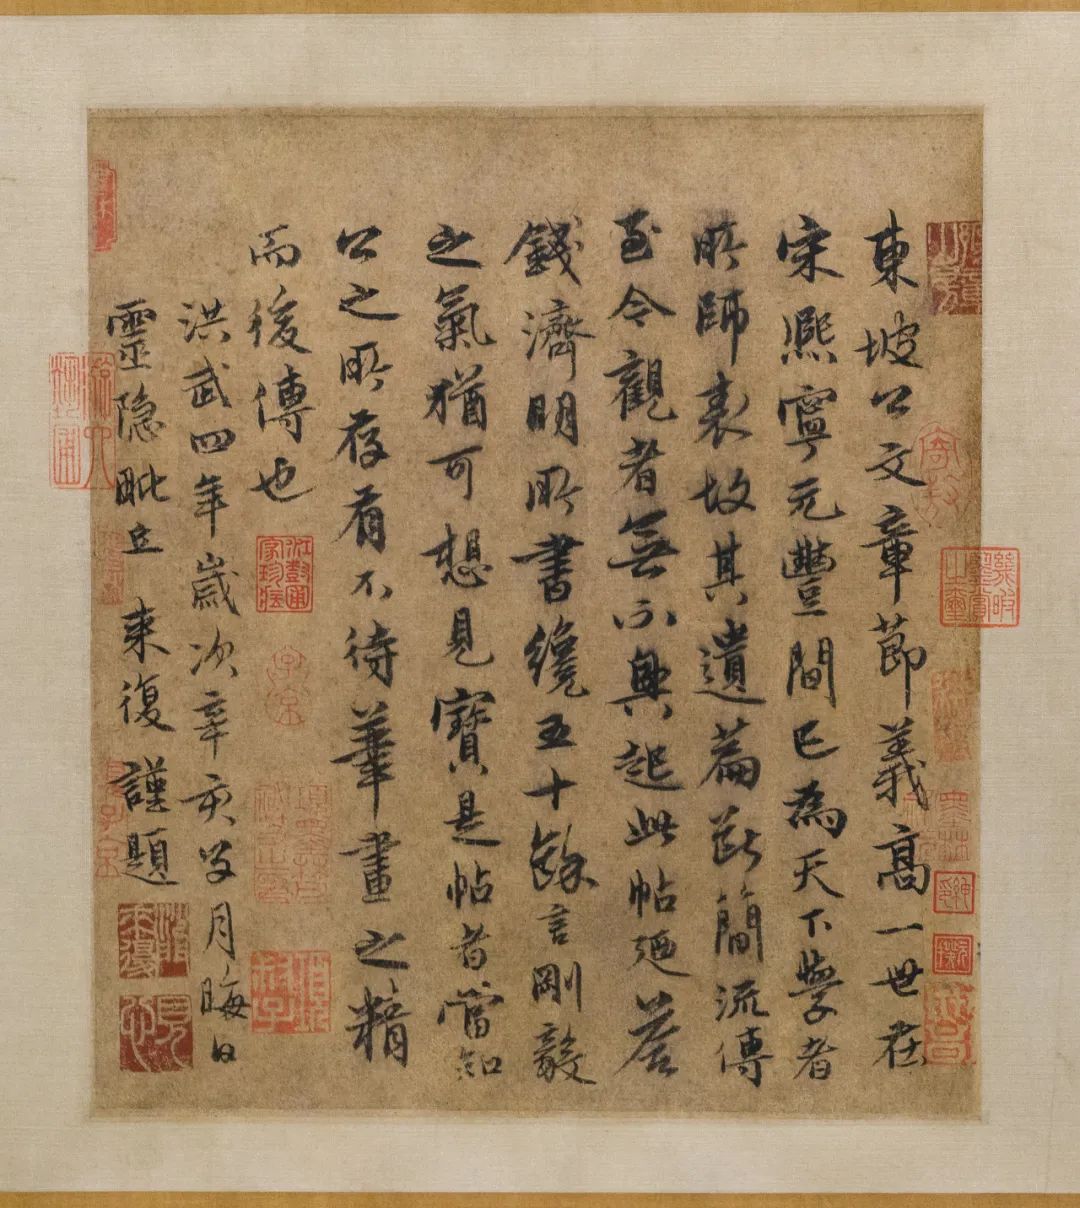 東坡公文章節義高一世在
宋熙寧元豐間已為天下學者
所師表故其遺篇斷簡流傳
至今觀者無不興起此帖廼荅
錢濟明所書纔五十餘言剛毅
之氣猶可想見寶是帖者當知
公之所存有不待筆畫之精
而後傳也
洪武四年歲次辛亥四月晦日
靈隱毗丘 來復 謹題